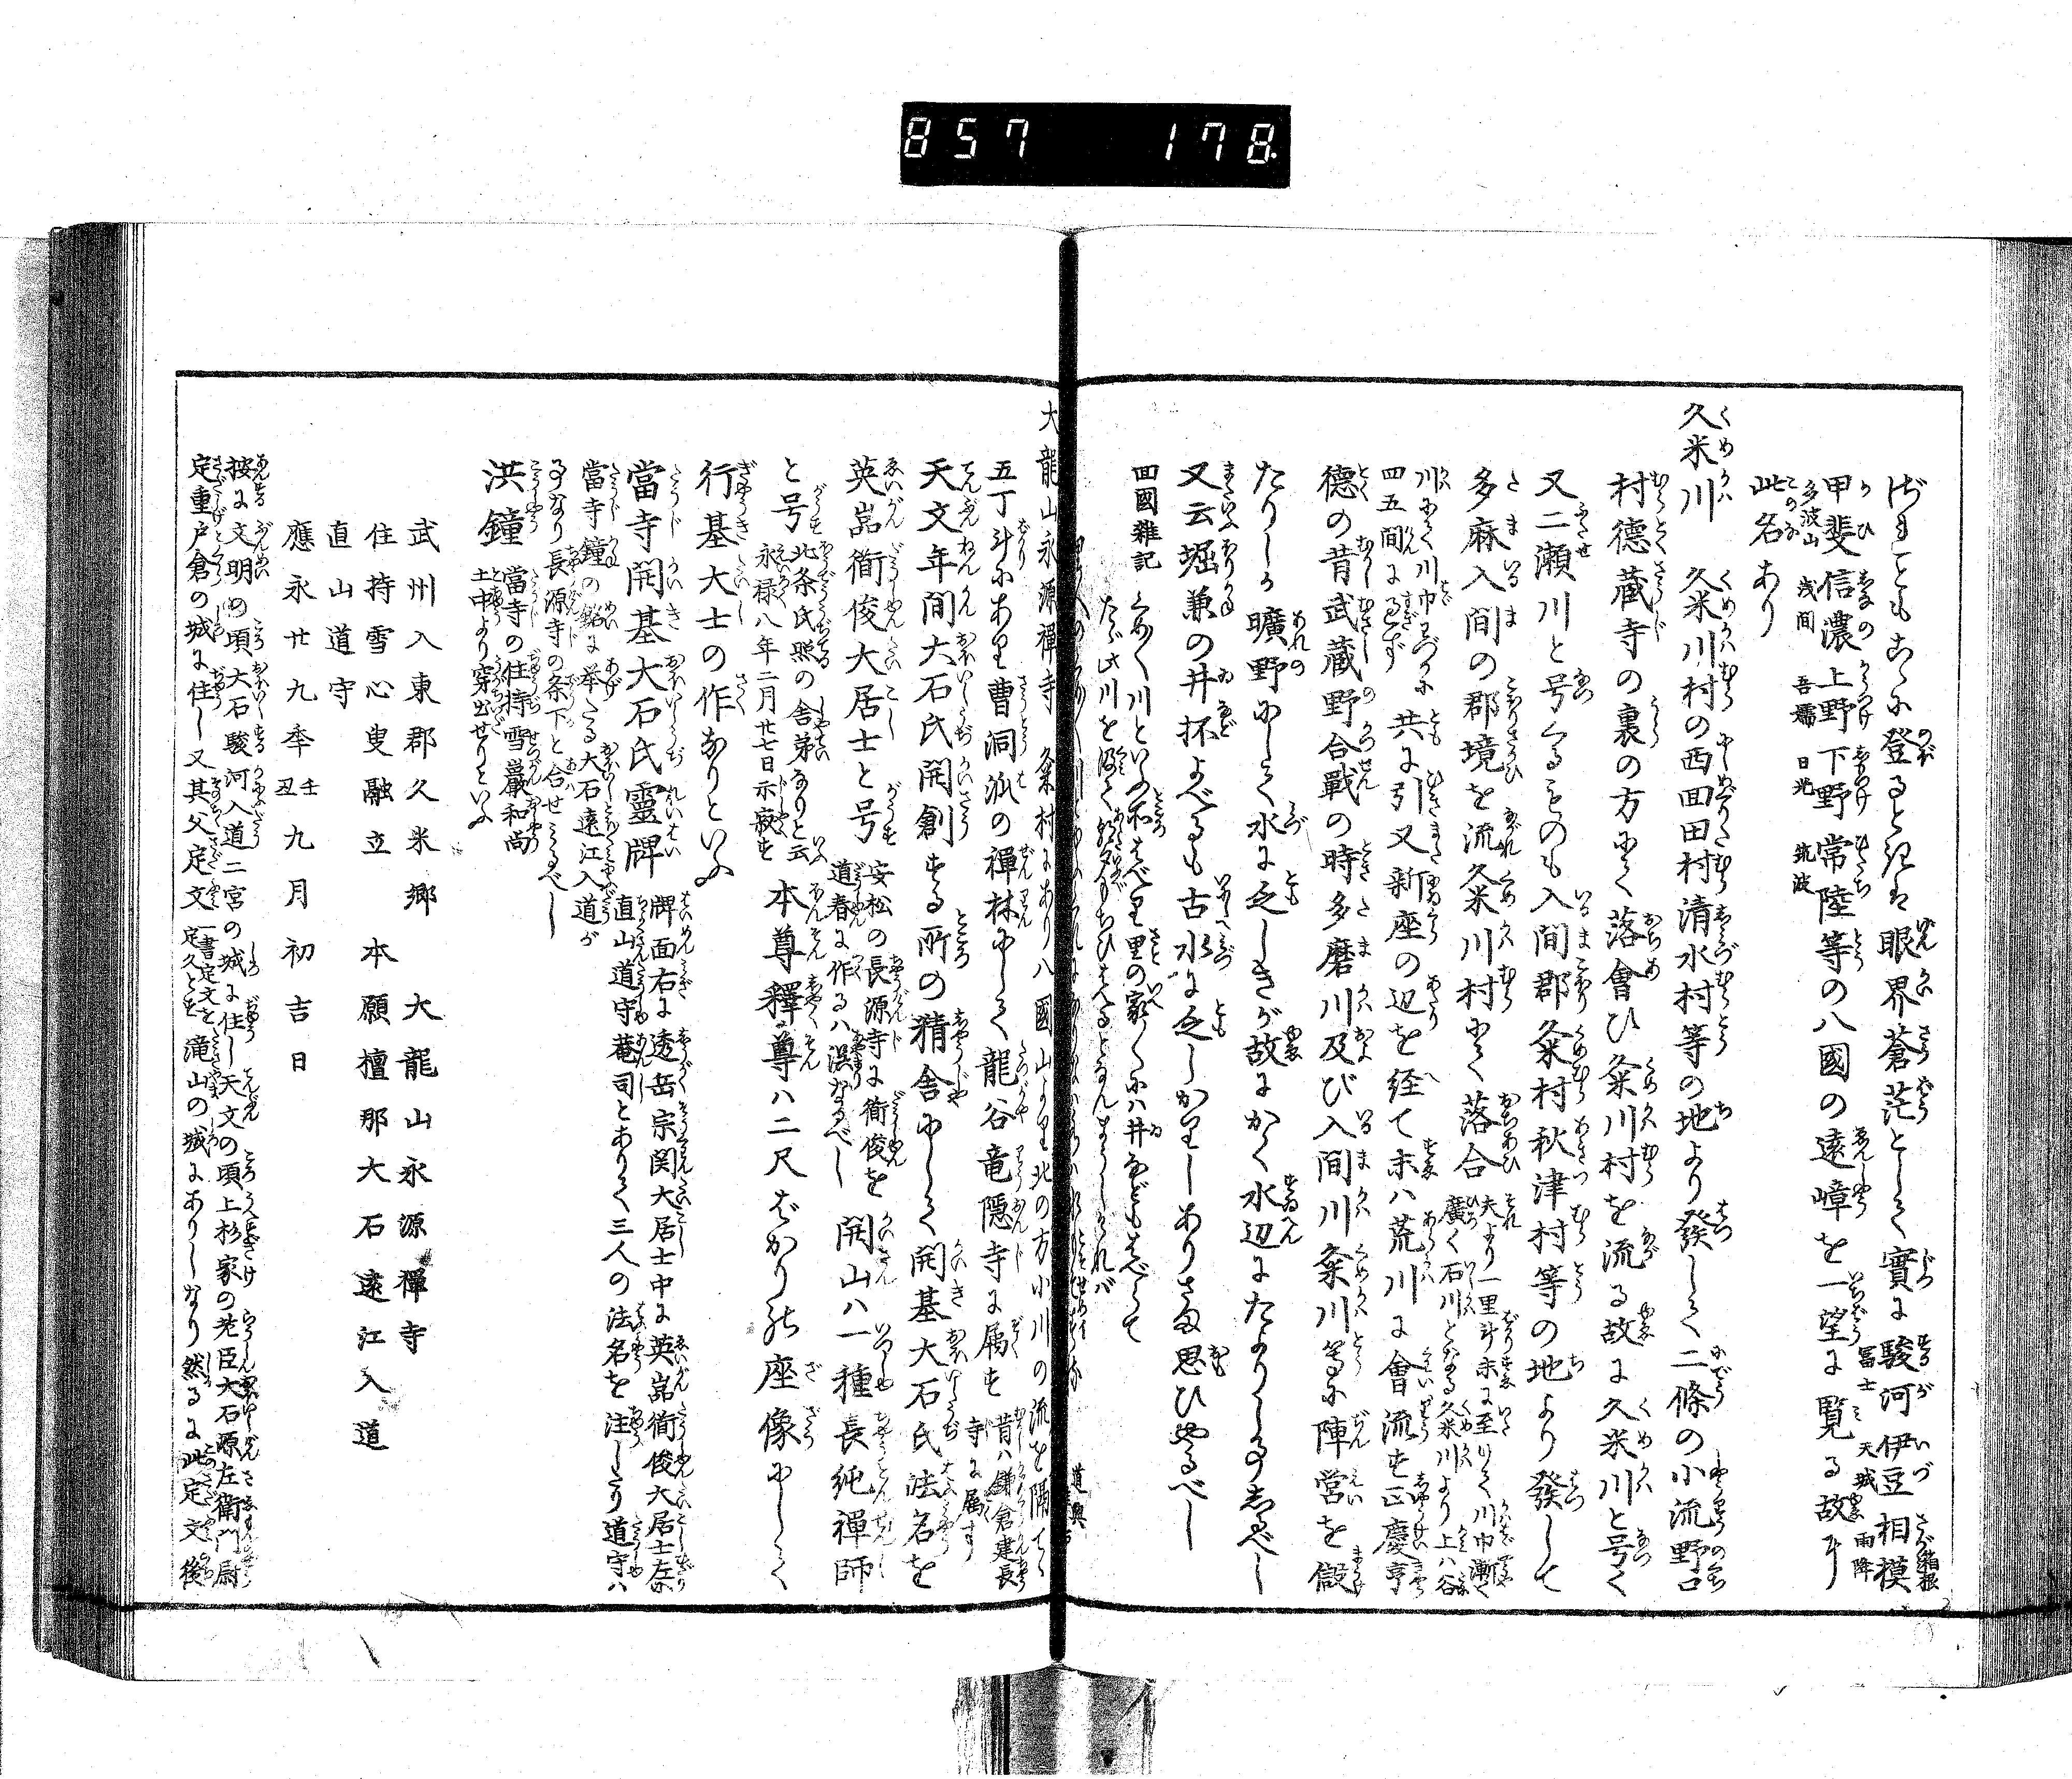 857 178
ば𛀁どもこゝに登るときは眼界蒼茫として實に駿河伊豆相模箱根
甲斐信濃上野下野常陸等の八國の遠嶂を一望に覧る故に冨士 天城 雨降
多波山 浅間 吾嬬 日光 筑波
此名あり
久米川 久米川村の西回田村清水村等の地より發して二條の小流野口
村徳蔵寺の裏の方にて落會ひ粂川村を流る故に久米川と号く
又二瀬川と号くるものも入間郡粂村秋津村等の地より發して
多麻入間の郡境を流久米川村にて落合夫より一里斗末に至りて川巾漸く
廣く石川となる久米川より上ハ谷
川にて川巾わづかに
四五間にすぎず共に引又新座の辺を経て末ハ荒川に會流す正慶亨
徳の昔武蔵野合戰の時多磨川及び入間川粂川等に陣営を儲
たりしハ曠野にして水に乏しきが故にかく水辺にたよりしなるべし
又云堀兼の井抔よべるも古水に乏しかりしありさま思ひやるべし
回國雑記 くめ〳〵川といふ所はべり里の家〳〵にハ井などもはべらで
たゞ此川を汲て朝夕もちひはべるとなん申しければ
道興
大龍山永源禪寺 粂村にあり八國山より北の方小川の流を隔てゝ
五丁斗にあり曹洞派の禪林にして龍谷竜隠寺に属す昔ハ鎌倉建長
寺に属す
天文年間大石氏開創する所の精舎にして開基大石氏法名を
英嵓衜俊大居士と号安松の長源寺に衜俊を
道春に作るハ誤なるべし開山ハ一種長純禪師
と号北条氏照の舎弟なりと云
永禄八年二月廿七日示寂す本尊釋尊ハ二尺ばかりの座像にして
行基大士の作なりといふ
當寺開基大石氏靈牌 牌面右に透岳宗関大居士中に英嵓衜俊大居士左に
直山道守菴司とありて三人の法名を注したり道守ハ
當寺鐘の銘に挙たる大石遠江入道が
事なり長源寺の条下と合せみるべし
洪鐘 當寺の住持雪巖和尚
土中より穿出せりといふ
武州入東郡久米郷 大龍山永源禪寺
住持雪心叟融立 本願檀那大石遠江入道
直山道守
應永廿九年壬丑九月初吉日
按に文明の頃大石駿河入道二宮の城に住し天文の頃上杉家の老臣大石源左衛門尉
定重戸倉の城に住し又其父定文一書定文を
定久とす滝山の城にありしなり然るに此定文後